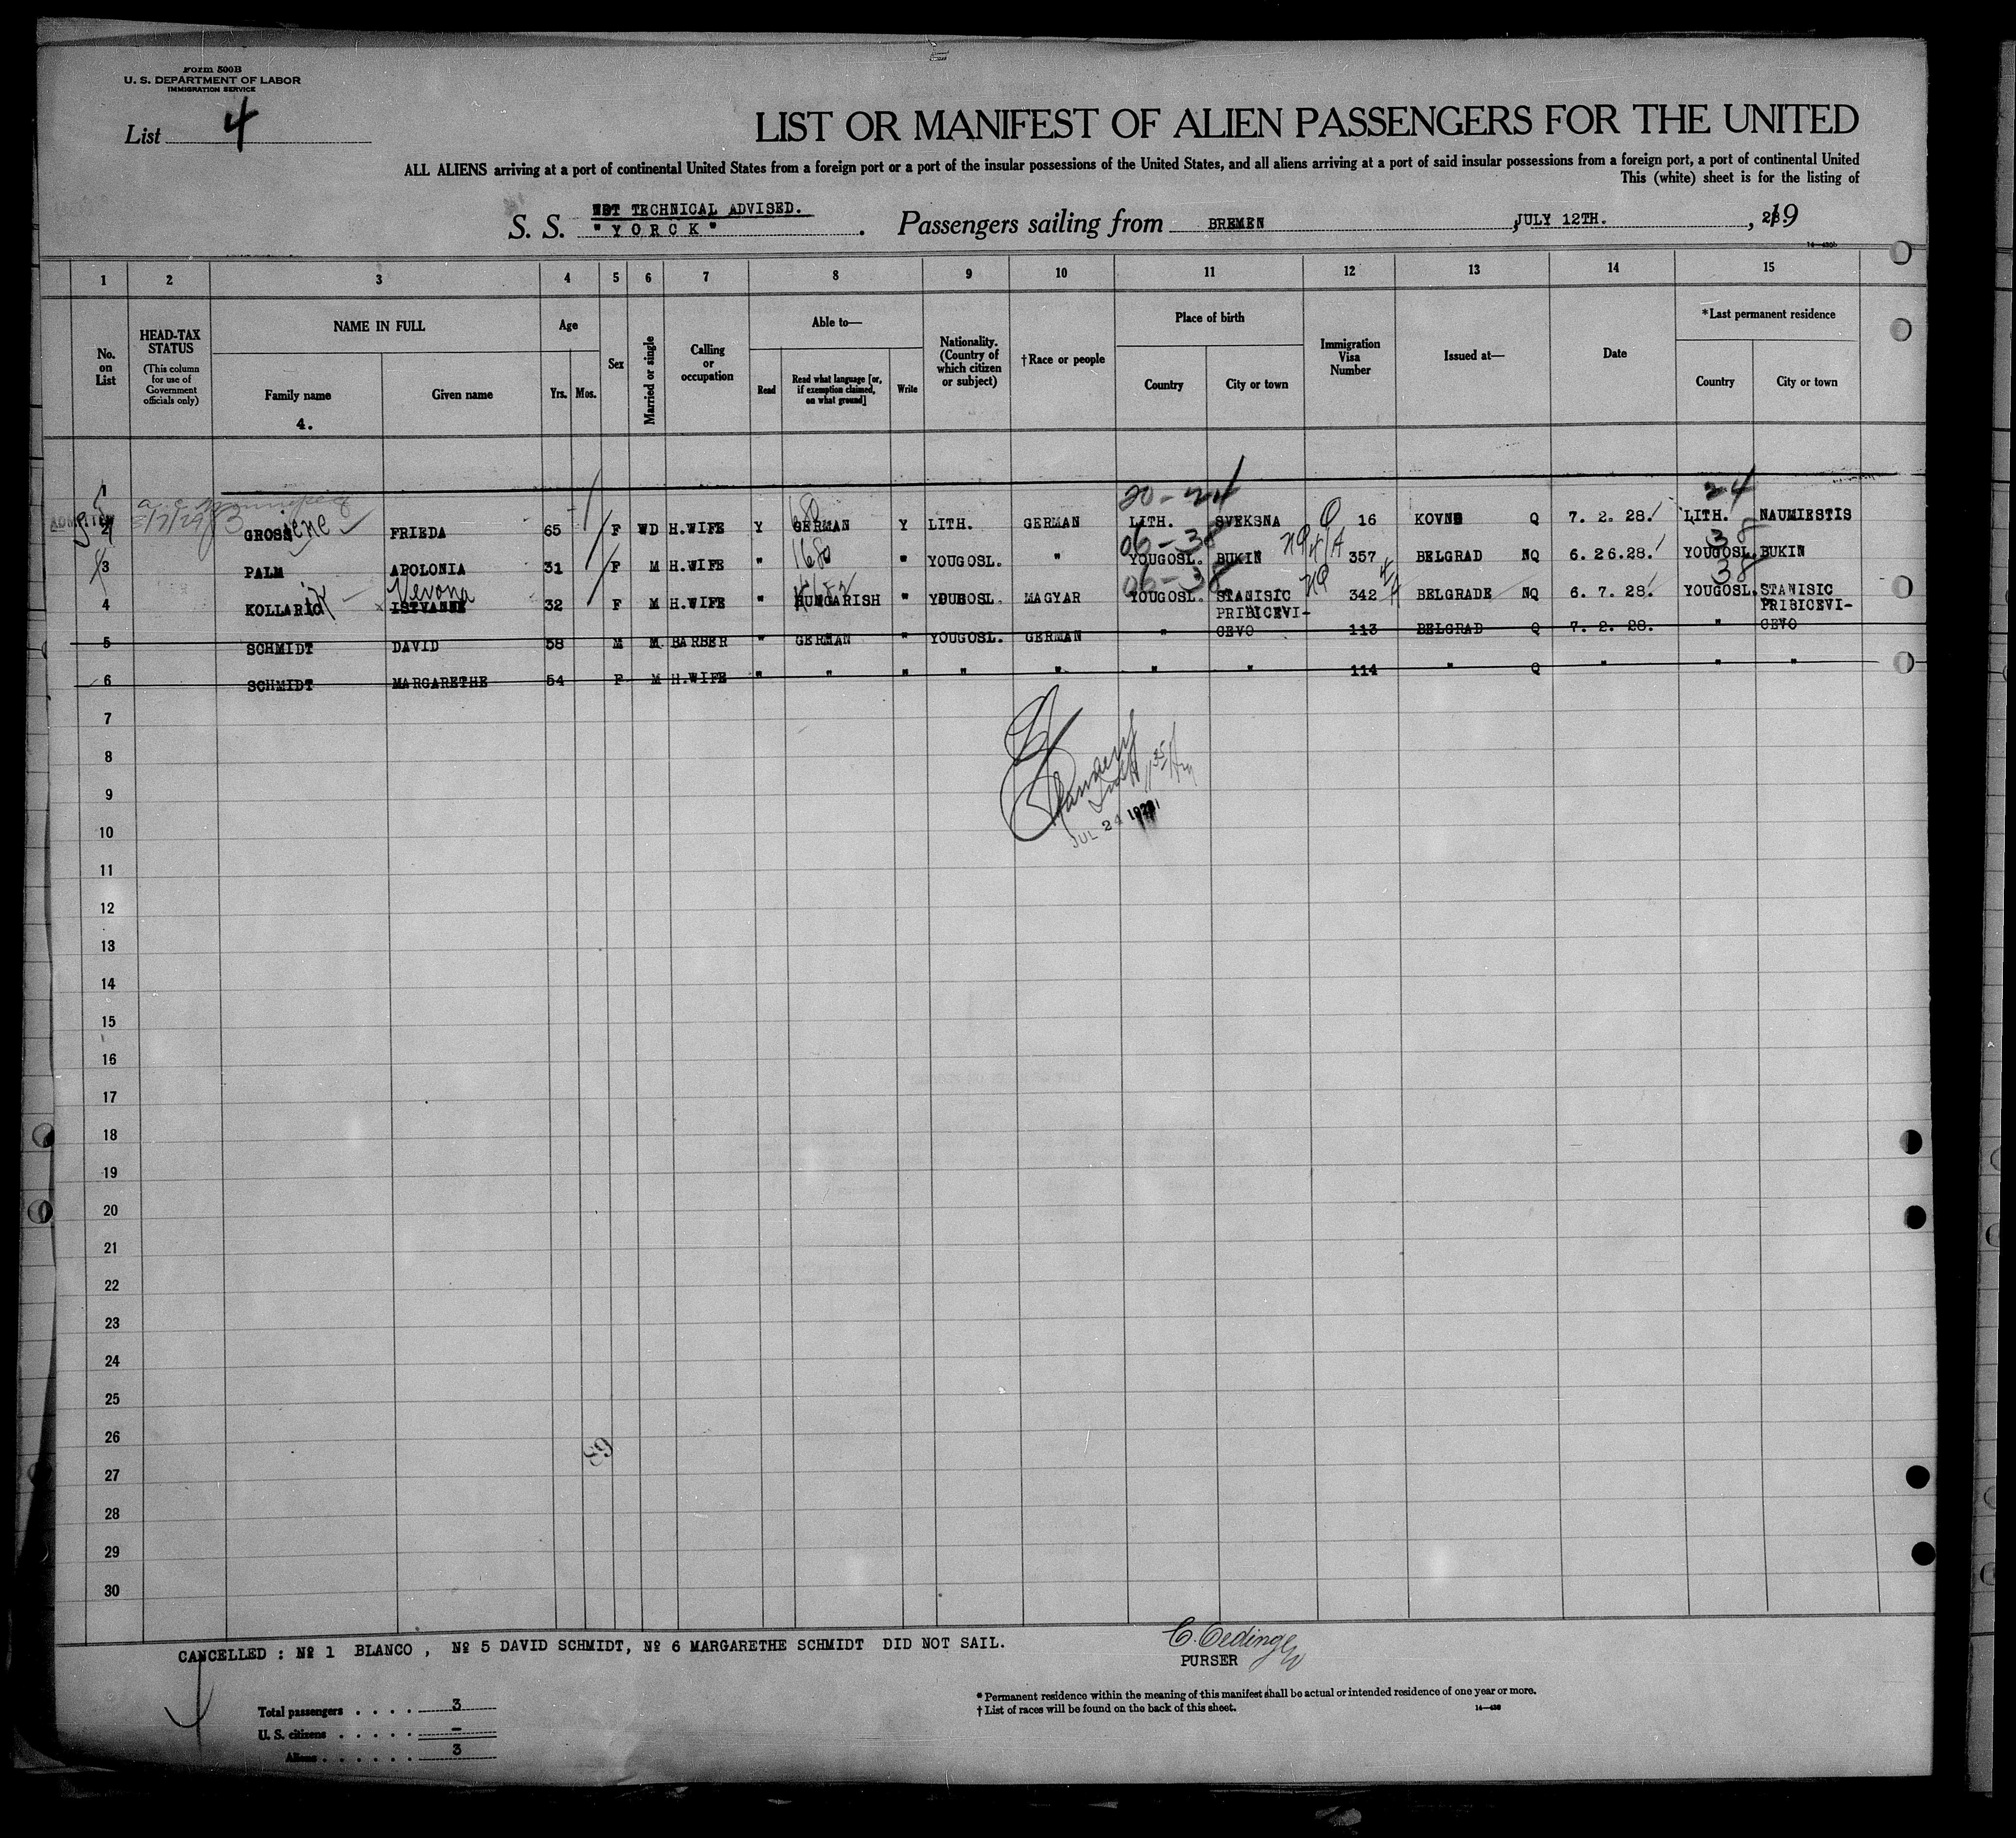 Form 500B
U. S. DEPARTMENT OF LABOR
IMMIGRATION SERVICE
List 4
LIST OR MANIFEST OF ALIEN PASSENGERS FOR THE UNITED
ALL ALIENS arriving at a port of continental United States from a foreign port or a port of the insular possessions of the United States, and all aliens arriving at a port of said insular possessions from a foreign port, a port of continental United
This (white) sheet is for the listing of
NOT TECHNICAL ADVISED.
S. S. "YORCK" . Passengers sailing from BREMEN , JULY 12TH. , 19 28
14—430b
1 2 3 4 5 6 7 8 9 10 11 12 13 14 15
No. on List
HEAD-TAX STATUS
(This column for use of Government officials only)
NAME IN FULL
Family name
Given name
Age
Yrs. Mos.
Sex
Married or single
Calling or occupation
Able to—
Read
Read what language [or, if exemption claimed, on what ground]
Write
Nationality. (Country of which citizen or subject)
†Race or people
Place of birth
Country
City or town
Immigration Visa Number
Issued at—
Date
*Last permanent residence
Country
City or town
4.
1
20-24 24
2 GROSSENE FRIEDA 65 F WD H.WIFE Y GERMAN Y LITH. GERMAN LITH. SVEKSNA Q 16 KOVNO Q 7. 2. 28. LITH. NAUMIESTIS
06-38 38
3 PALM APOLONIA 31 F M H.WIFE " 168 " YOUGOSL. " YOUGOSL. BUKIN NQ 357 BELGRAD NQ 6. 26.28. YOUGOSL. BUKIN
Verona 06-38 38
4 KOLLARIC ISTVANNE 32 F M H.WIFE " HUNGARISH " YOUGOSL. MAGYAR YOUGOSL. STANISIC NQ 342 BELGRADE NQ 6. 7. 28. YOUGOSL. STANISIC
PRIBICEVI- PRIBICEVI-
5 SCHMIDT DAVID 58 M M BARBER " GERMAN " YOUGOSL. GERMAN " CEVO 113 BELGRAD Q 7. 2. 28. " CEVO
6 SCHMIDT MARGARETHE 54 F M H.WIFE " " " " " " " 114 " Q " " "
7
8
9
JUL 24 1928
10
11
12
13
14
15
16
17
18
19
20
21
22
23
24
25
26
27
28
29
30
CANCELLED : № 1 BLANCO , № 5 DAVID SCHMIDT, № 6 MARGARETHE SCHMIDT DID NOT SAIL.
PURSER
* Permanent residence within the meaning of this manifest shall be actual or intended residence of one year or more.
† List of races will be found on the back of this sheet.
14—430
Total passengers . . . . 3
U. S. citizens . . . . . –
Aliens . . . . . . 3